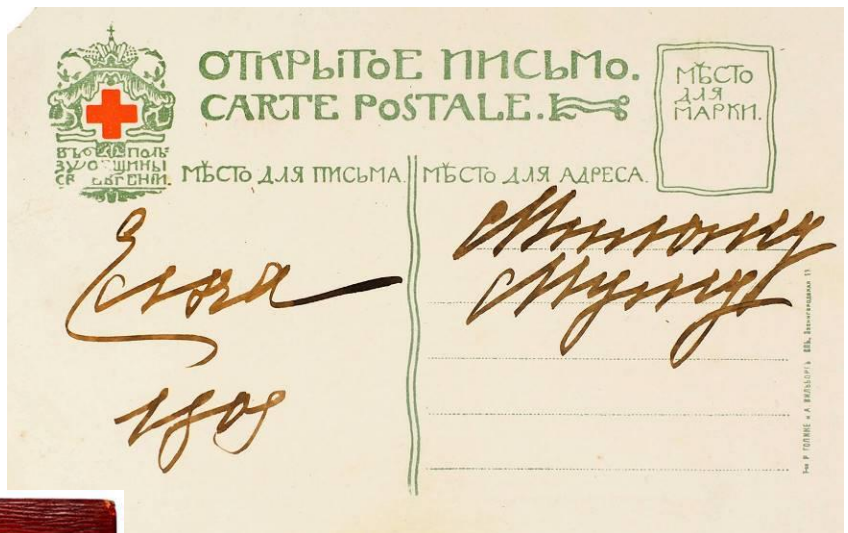 ОТКРЫТОЕ ПИСЬМО.
CARTE POSTALE.
МѢСТО
ДЛЯ
МАРКИ.
ВЪ ПОЛЬ
ЗУ ОБЩИНЫ
СВ ЕВГЕНІИ.
МѢСТО ДЛЯ ПИСЬМА.
МѢСТО ДЛЯ АДРЕСА.
Милому
Мужу
Ёлка
1909
Р. ГОЛИКЕ и А. ВИЛЬБОРГЪ. СПБ. Звенигородская 11